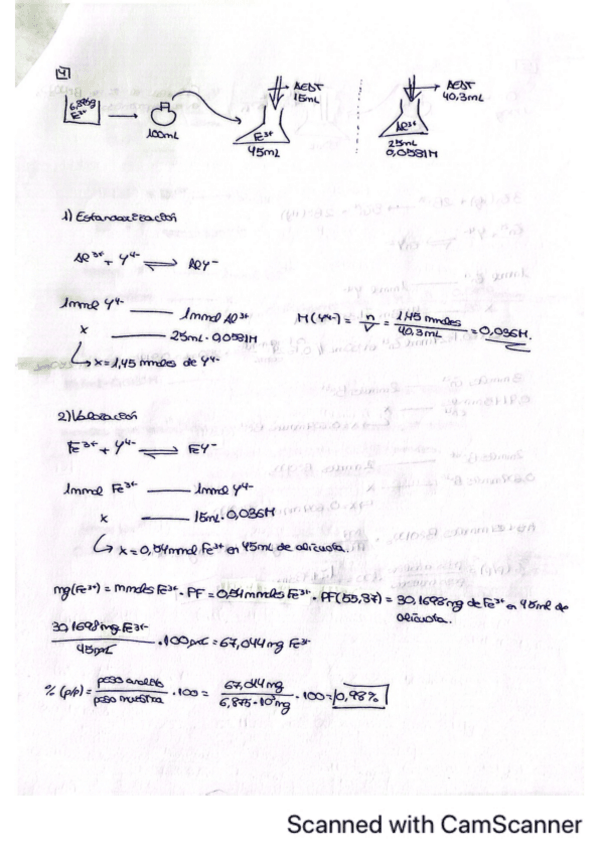 4
6,875g
Fe³⁺
100mL
AEDT
15mL
Fe³⁺
45mL
AEDT
40,3mL
Al³⁺
25mL
0,0581M
1) Estandarización
Al³⁺ + Y⁴⁻ ⇌ AlY⁻
1mmol Y⁴⁻ —— 1mmol Al³⁺
x —— 25mL · 0,0581M
↳ x = 1,45 mmoles de Y⁴⁻
M(Y⁴⁻) = n/V = 1,45 mmoles/40,3mL = 0,036M.
2) Valoración
Fe³⁺ + Y⁴⁻ ⇌ FeY⁻
1mmol Fe³⁺ —— 1mmol Y⁴⁻
x —— 15mL · 0,036M
↳ x = 0,54mmol Fe³⁺ en 45mL de alícuota.
mg(Fe³⁺) = mmoles Fe³⁺ · PF = 0,54mmoles Fe³⁺ · PF(55,87) = 30,1698 mg de Fe³⁺ en 45ml de
alícuota.
30,1698 mg Fe³⁺/45mL · 100mL = 67,044 mg Fe³⁺
% (p/p) = peso analito/peso muestra · 100 = 67,044 mg/6,875·10³mg · 100 = 0,98%
Scanned with CamScanner